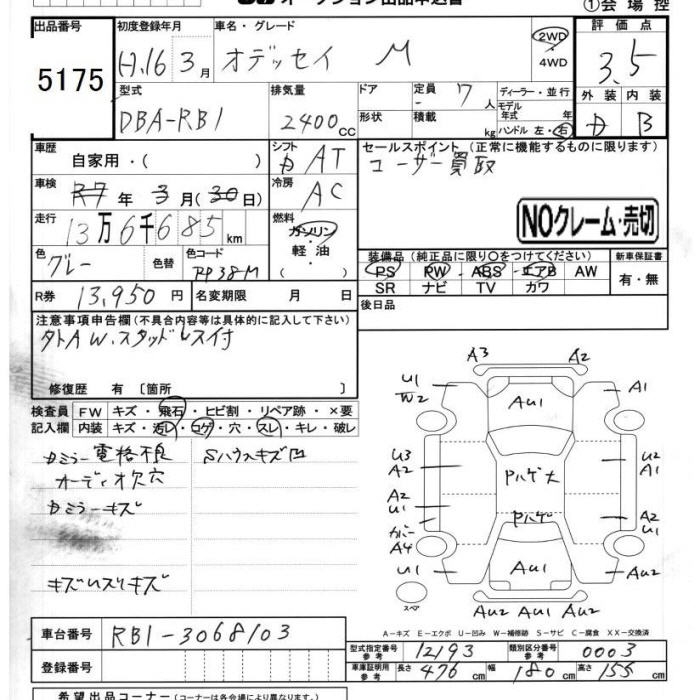 オークション出品申込書
①会場控
出品番号
5175
初度登録年月
H.16 3月
車名・グレード
オデッセイ M
2WD
・
4WD
評価点
3.5
外装 内装
B
型式
DBA-RB1
排気量
2400cc
ドア
形状
定員 7人
積載 kg
ディーラー・並行
モデル年式 年
ハンドル 左・右
車歴
自家用・( )
シフト
AT
車検
R7年 3月(30日)
冷房
AC
走行
13万6千685km
燃料
ガソリン
・
軽油
( )
色
グレー
色替
色コード
セールスポイント (正常に機能するものに限ります)
ユーザー買取
NOクレーム・売切
装備品 (純正品に限り○をつけてください)
PS PW ABS エアB AW
SR ナビ TV カワ
新車保証書
有・無
R券 13,950円
名変期限 月 日
後日品
注意事項申告欄(不具合内容等は具体的に記入して下さい)
外トAW.スタッドレス付
修復歴 有 〔箇所 〕
検査員記入欄
FW キズ・飛石・ヒビ割・リペア跡・×要
内装 キズ・汚レ・コゲ・穴・スレ・キレ・破レ
カミラー電格不良
Sハウスキズ凹
オーディオ欠穴
カミラーキズ
A3 A2
U1
W2
AU1
A1
U3
A2
Pハゲ大
U2
A1
A2
U1
Pハゲ
A2
U1
カバー
A4
U1
AU1
AU2
スペア
AU2 AU2 AU1
A−キズ E−エクボ U−凹み W−補修跡 S−サビ C−腐食 XX−交換済
車台番号
RB1-3068103
登録番号
型式指定番号 参考 12193
類別区分番号 参考 0003
車庫証明用 参考 長さ 476cm 幅 180cm 高さ 155cm
希望出品コーナー(コーナーは各会場により異なります)